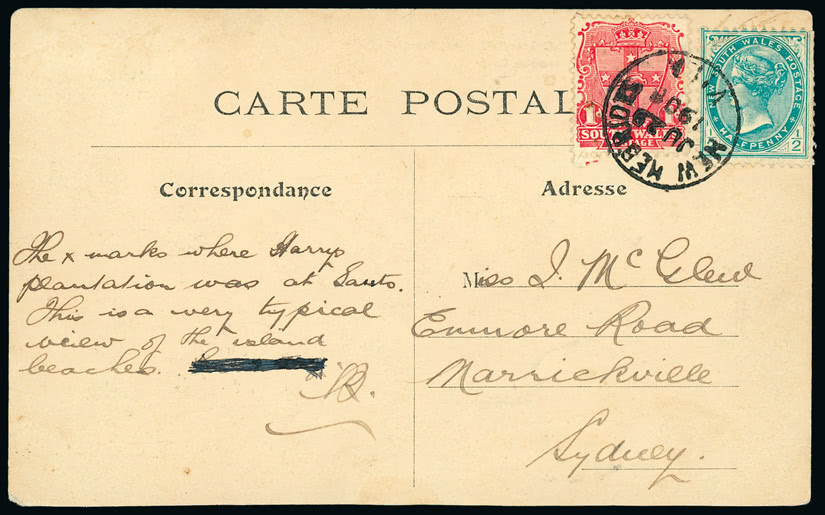 CARTE POSTALE
1 SOUTH WALES
POSTAGE
NEW SOUTH WALES POSTAGE
1/2 HALFPENNY 1/2
VILA
JU 29
NEW HEBRIDES
Correspondance
The x marks where Harrys
plantation was at Santo.
This is a very typical
view of the island
beaches.
Adresse
Miss J. McGlew
Enmore Road
Marrickville
Sydney.